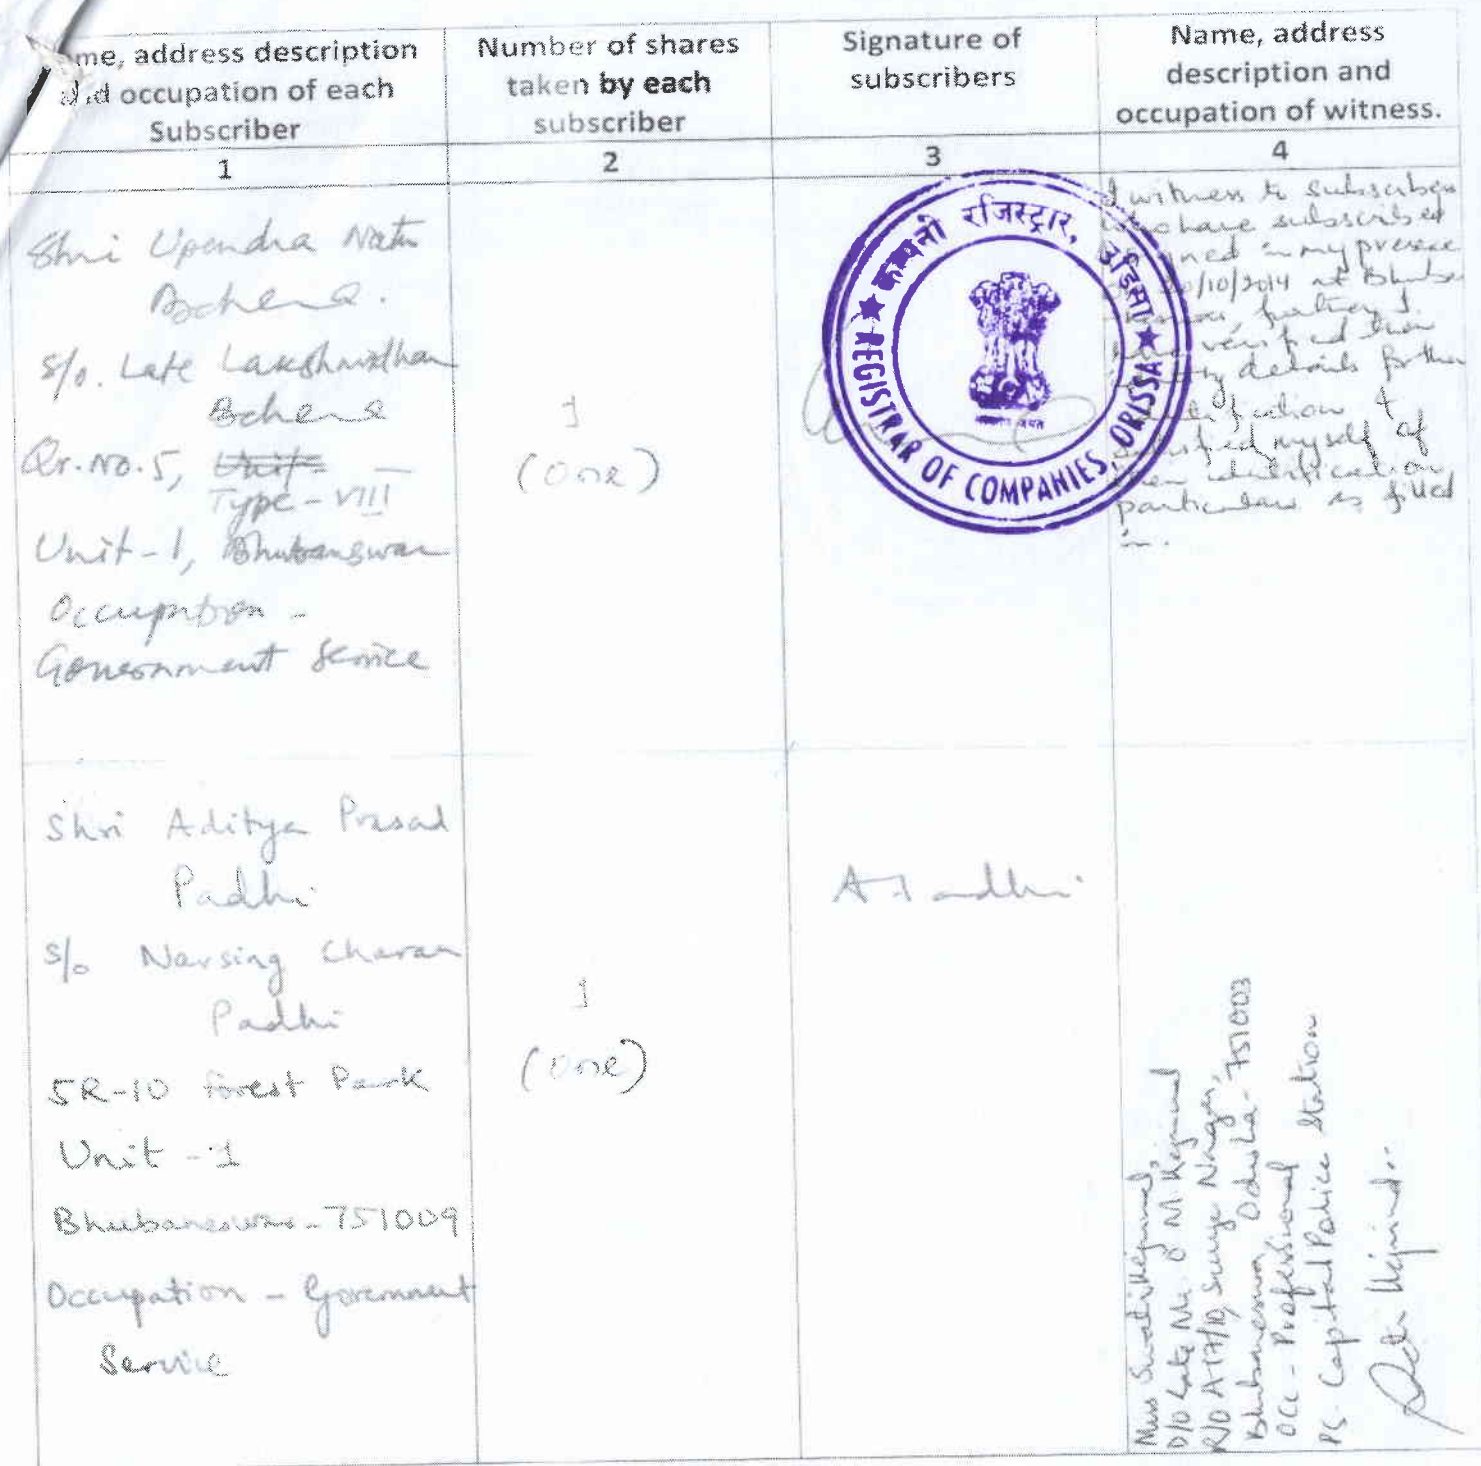 me, address description
and occupation of each
Subscriber
Number of shares
taken by each
subscriber
Signature of
subscribers
Name, address
description and
occupation of witness.
1
2
3
4
Shri Upendra Nath
Behera.
S/o. Late Lakshmidhar
Behera
Qr.No.5, Unit-
Type-VIII
Unit-1, Bhubaneswar
Occupation -
Government Service
1
(One)
कम्पनी रजिस्ट्रार, उड़िसा
REGISTRAR OF COMPANIES, ORISSA
I witness to subscribers
who have subscribed
signed in my presence
/10/2014 at Bhuba
further I
verified their
details for their
identification &
satisfied myself of
their identification
particulars as filled
in.
Shri Aditya Prasad
Padhi
S/o Narsing Charan
Padhi
5R-10 Forest Park
Unit-1
Bhubaneswar-751009
Occupation - Government
Service
1
(One)
A Padhi
Miss Swati
D/O Late Mr. O M
R/O A-177/10, Surya Nagar,
Bhubaneswar, Odisha-751003
OCC - Professional
PS - Capital Police Station